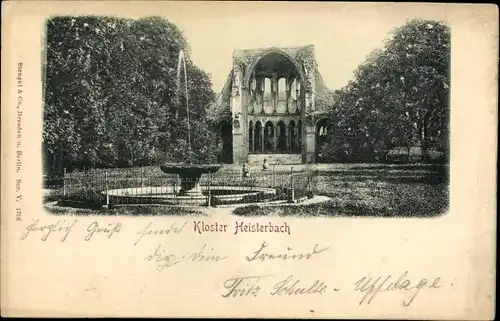 Stengel & Co., Dresden u. Berlin. Ser. V. 1716
Kloster Heisterbach
Herzlich Gruß sendet
dir dein Freund
Fritz Schulte -